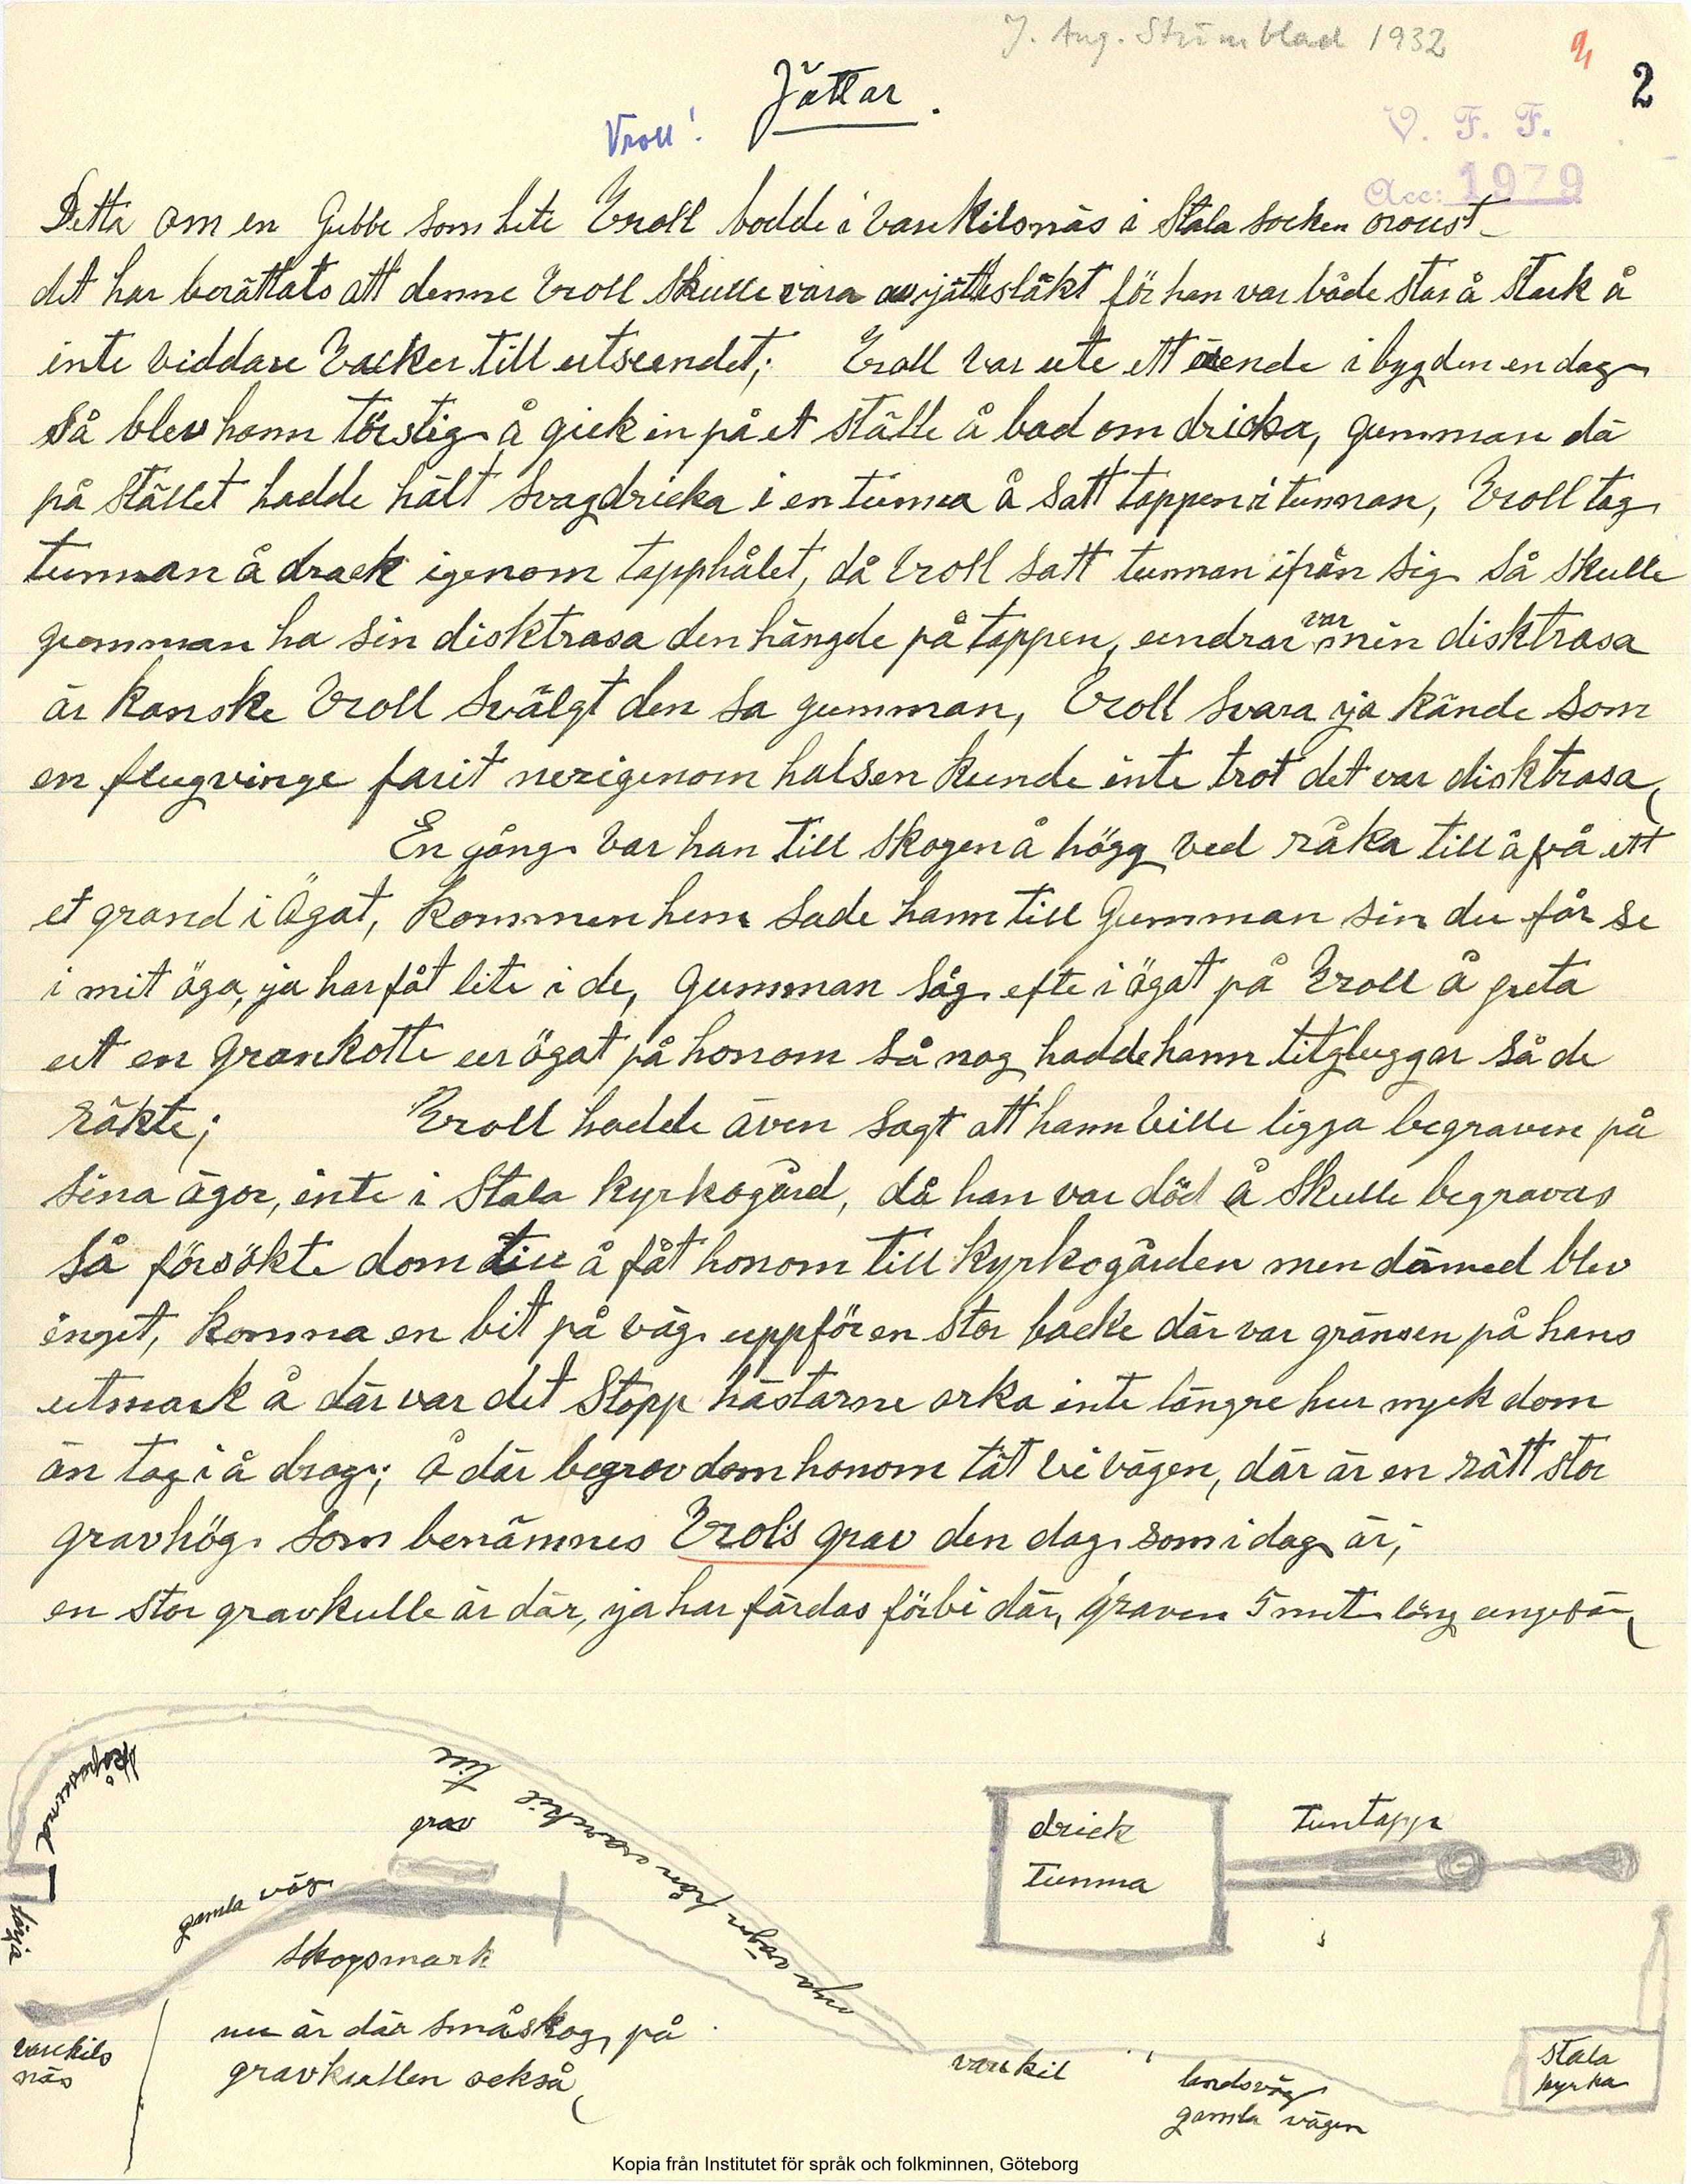 J. Aug. Strömblad 1932
2
Jättar.
Vroll!
V. F. F.
Acc: 1979
Detta om en Gubbe som hete Vroll bodde i Vaxkilsnäs i Stala socken oroust
det har berättats att denne Vroll skulle vara av jättesläkt för han var både stor å stark å
inte viddare Vacker till utseendet; Vroll var ute ett ärende i bygden en dag
så blev hann törstig å gick in på et ställe å bad om dricka, gumman då
på stället hadde hält svagdricka i en tunna å satt tappen i tunnan, Vroll tog
tunnan å drack igenom tapphålet, då Vroll satt tunnan ifrån sig så skulle
gumman ha sin disktrasa den hängde på tappen, undrar var min disktrasa
är kanske Vroll svälgt den sa gumman, Vroll svara ja kände som
en flugvinge farit nerigenom halsen kunde inte trot det var disktrasa
En gång var han till skogen å högg ved råka till å få ett
et grand i Ögat, kommen hem sade hann till Gumman sin du får se
i mit öga, ja har fåt lite i de, Gumman såg efte i ögat på Vroll å peta
ut en Grankotte ur ögat på honom så nog hadde hann titgluggar så de
räkte; Vroll hadde även sagt att hann ville ligga begraven på
sina ägor, inte i Stala kyrkogård, då han var död å skulle begravas
så försökte dom till å fåt honom till kyrkogården men därmed blev
inget, komna en bit på väg uppför en stor backe där var gränsen på hans
utmark å där var det Stopp hästarne orka inte längre hur myck dom
än tog i å drog; å där begrov dom honom tät vi vägen, där är en rätt stor
gravhög som benämnes Vrols grav den dag som i dag är;
en stor gravkulle är där, ja har färdas förbi där, graven 5 met. lång ungefär
Kåpasund
färja
nya vägen från varekil till
grav
gamla väg
skogsmark
varekils
näs
nu är där småskog på
gravkullen också
drick
Tunna
Tuntapp
varekil
landsväg
gamla vägen
stala
kyrka
Kopia från Institutet för språk och folkminnen, Göteborg